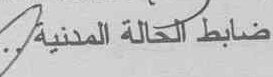 ضابط الحالة المدنية